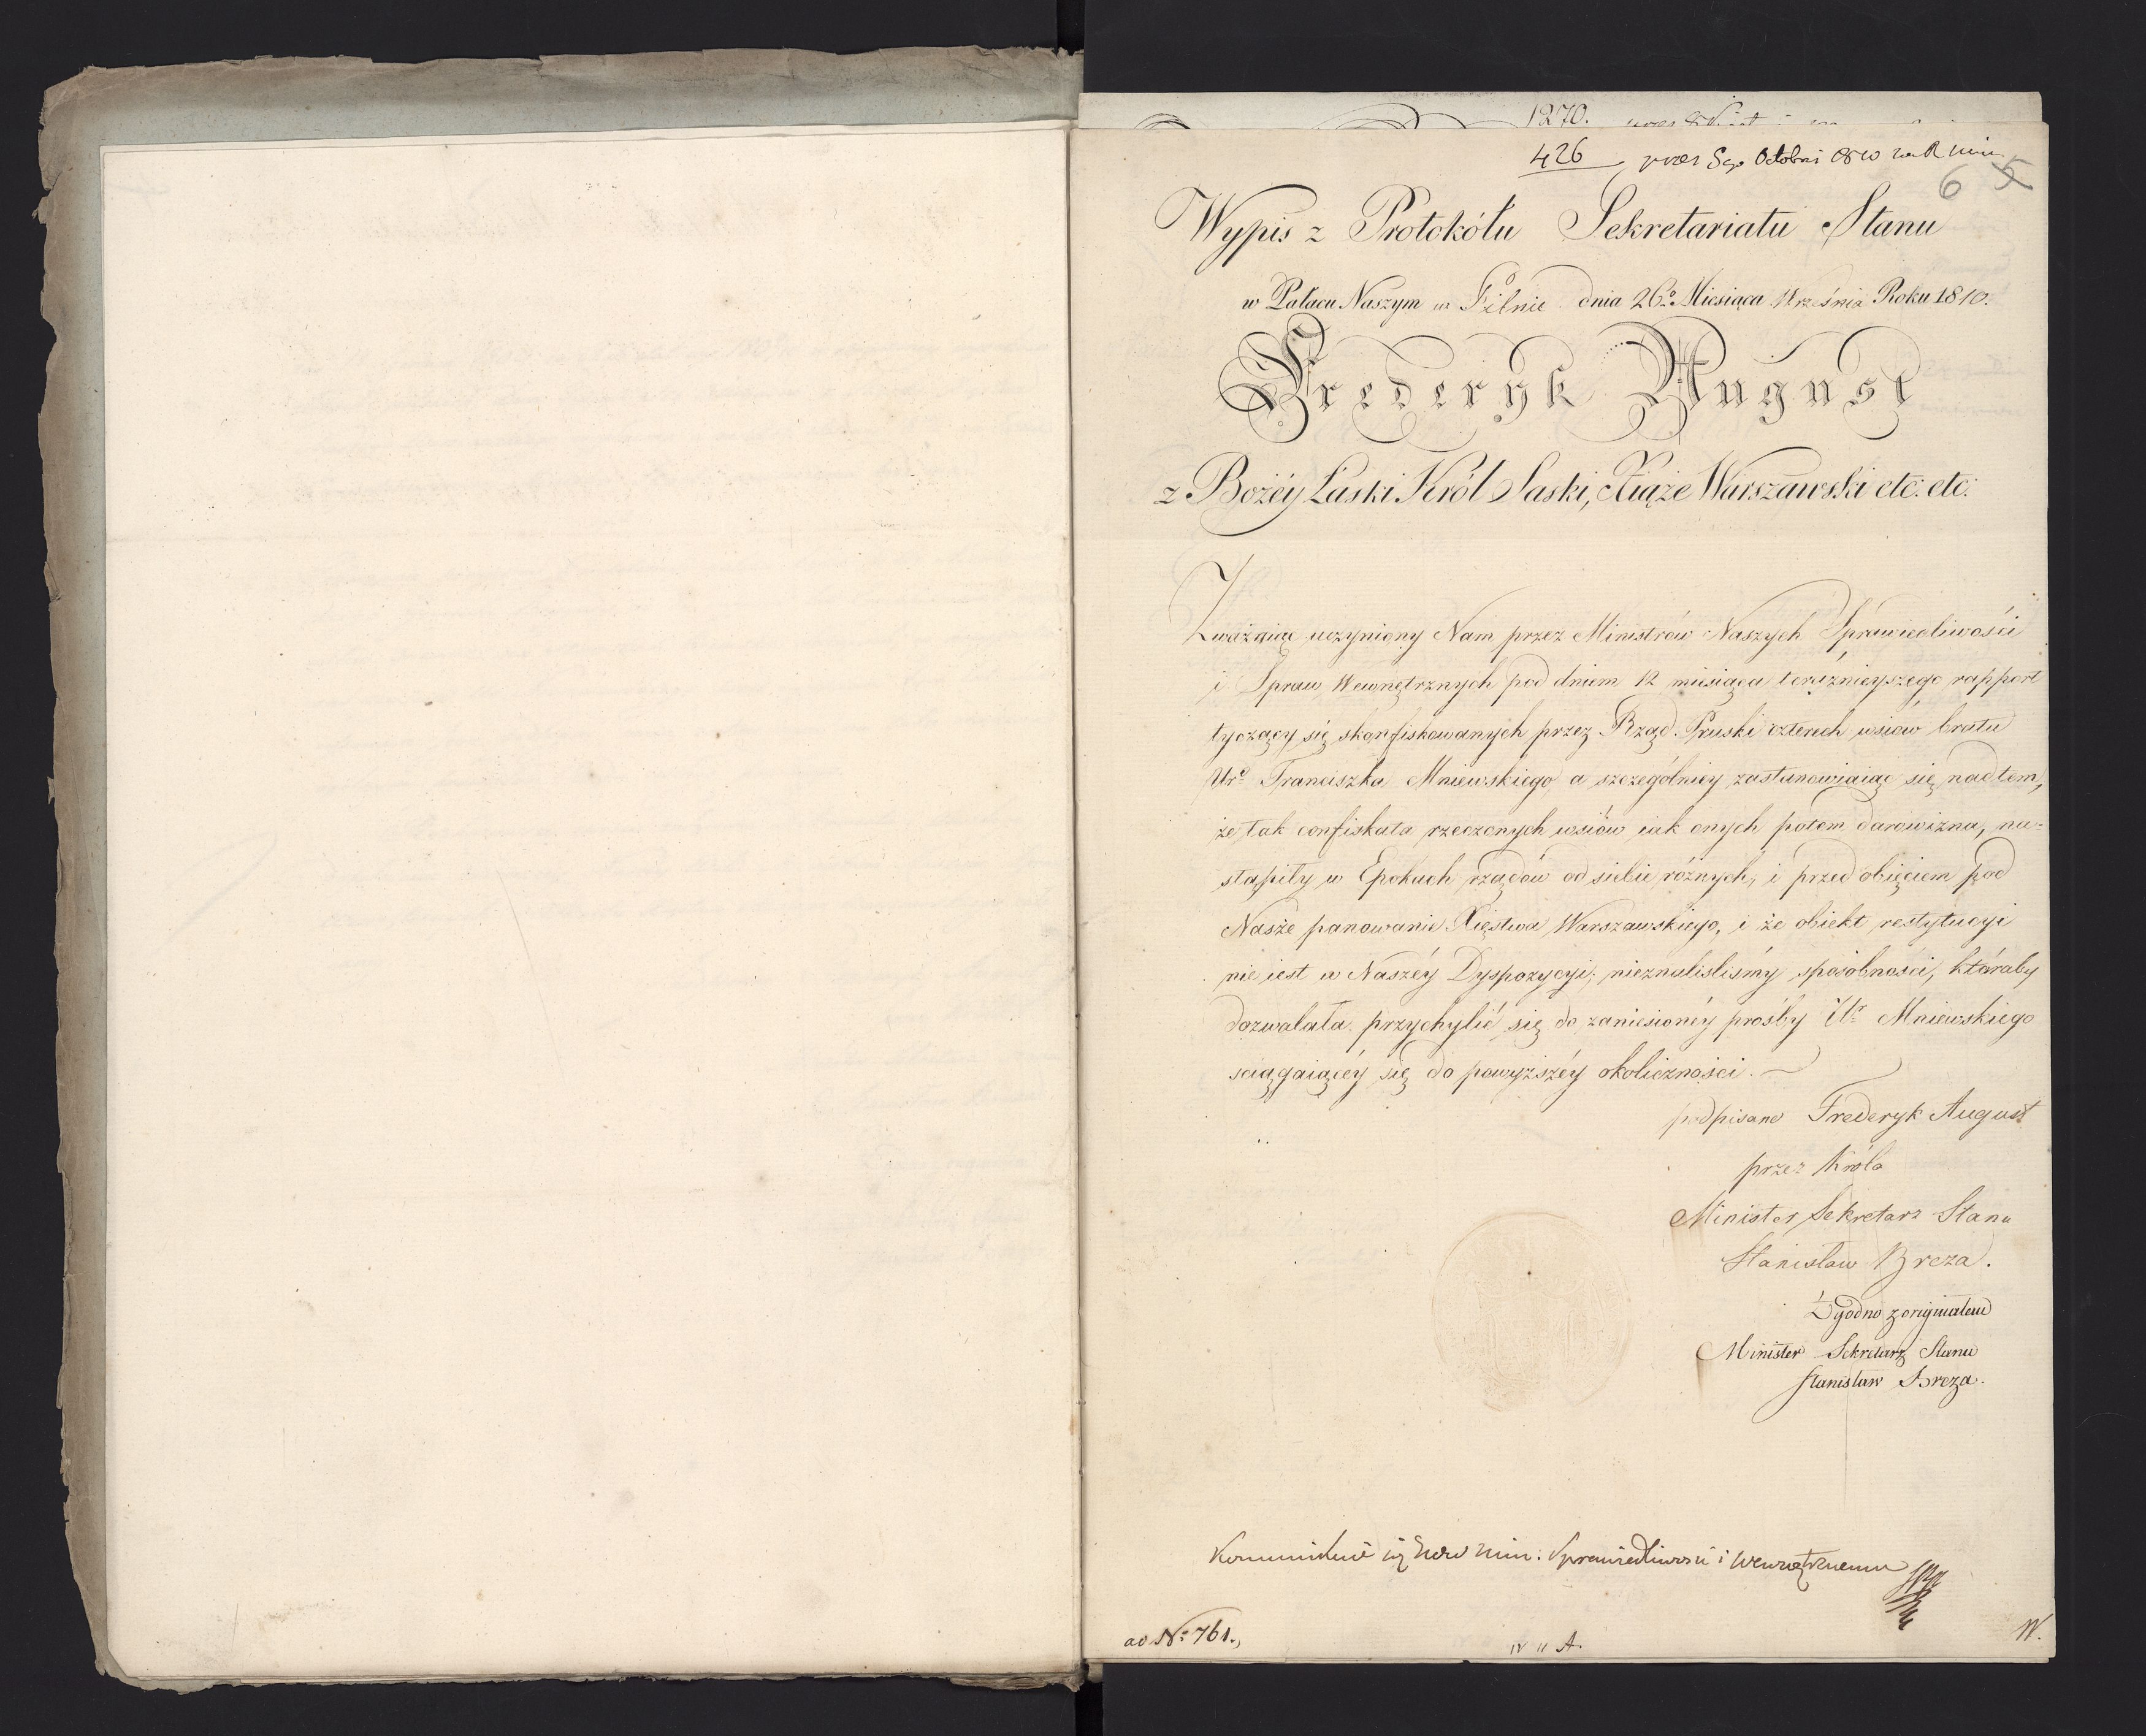 1270.
426 przez Sep Octobri 1810
6 5
Wypis z Protokółu Sekretariatu Stanu
w Pałacu Naszym w Pilnie dnia 26º Miesiąca Września Roku 1810.
Frederyk August
z Bożéy Łaski Król Saski, Xiąże Warszawski etc: etc:
Zważaiąc uczyniony Nam przez Ministrów Naszych Sprawiedliwości
i Spraw Wewnętrznych pod dniem 12 miesiąca teraźnieyszego rapport
tyczący się skonfiskowanych przez Rząd Pruski czterech wsiów bratu
Urº Franciszka Mniewskiego, a szczególniey zastanowiaiąc się nad tem,
że tak confiskata rzeczonych wsiów iak onych potem darowizna, na=
stąpiły w Epokach rządów od siebie różnych, i przed obięciem pod
Nasze panowanie Xięstwa Warszawskiego, i że obiekt restytucyi
nie iest w Naszéy Dyspozycyi; nieznaliśliśmy sposobności, któraby
dozwalała przychylić się do zaniesionéy prośby Ur Mniewskiego
sciągaiącéy się do powyższéy okoliczności.
podpisano Frederyk August
przez Króla
Minister Sekretarz Stanu
Stanisław Breza.
Zgodno z originałem
Minister Sekretarz Stanu
Stanisław Breza.
min: Sprawiedliwości i Wewnętrznemu
ad Nº 761.,
IV II A.
W.